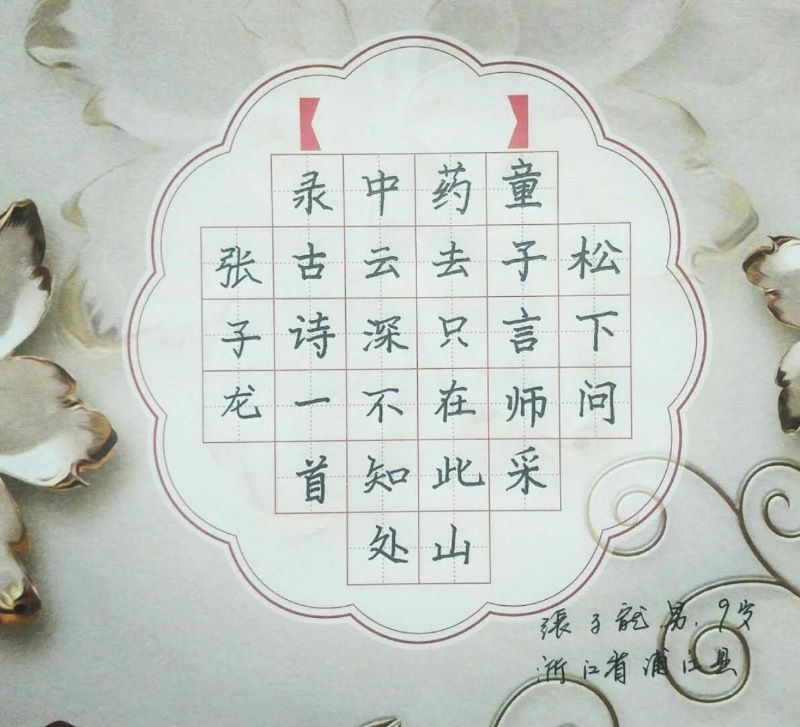 松下问
童子言师采
药去只在此山
中云深不知处
录古诗一首
张子龙
張子龍男.9岁
浙江省浦江县